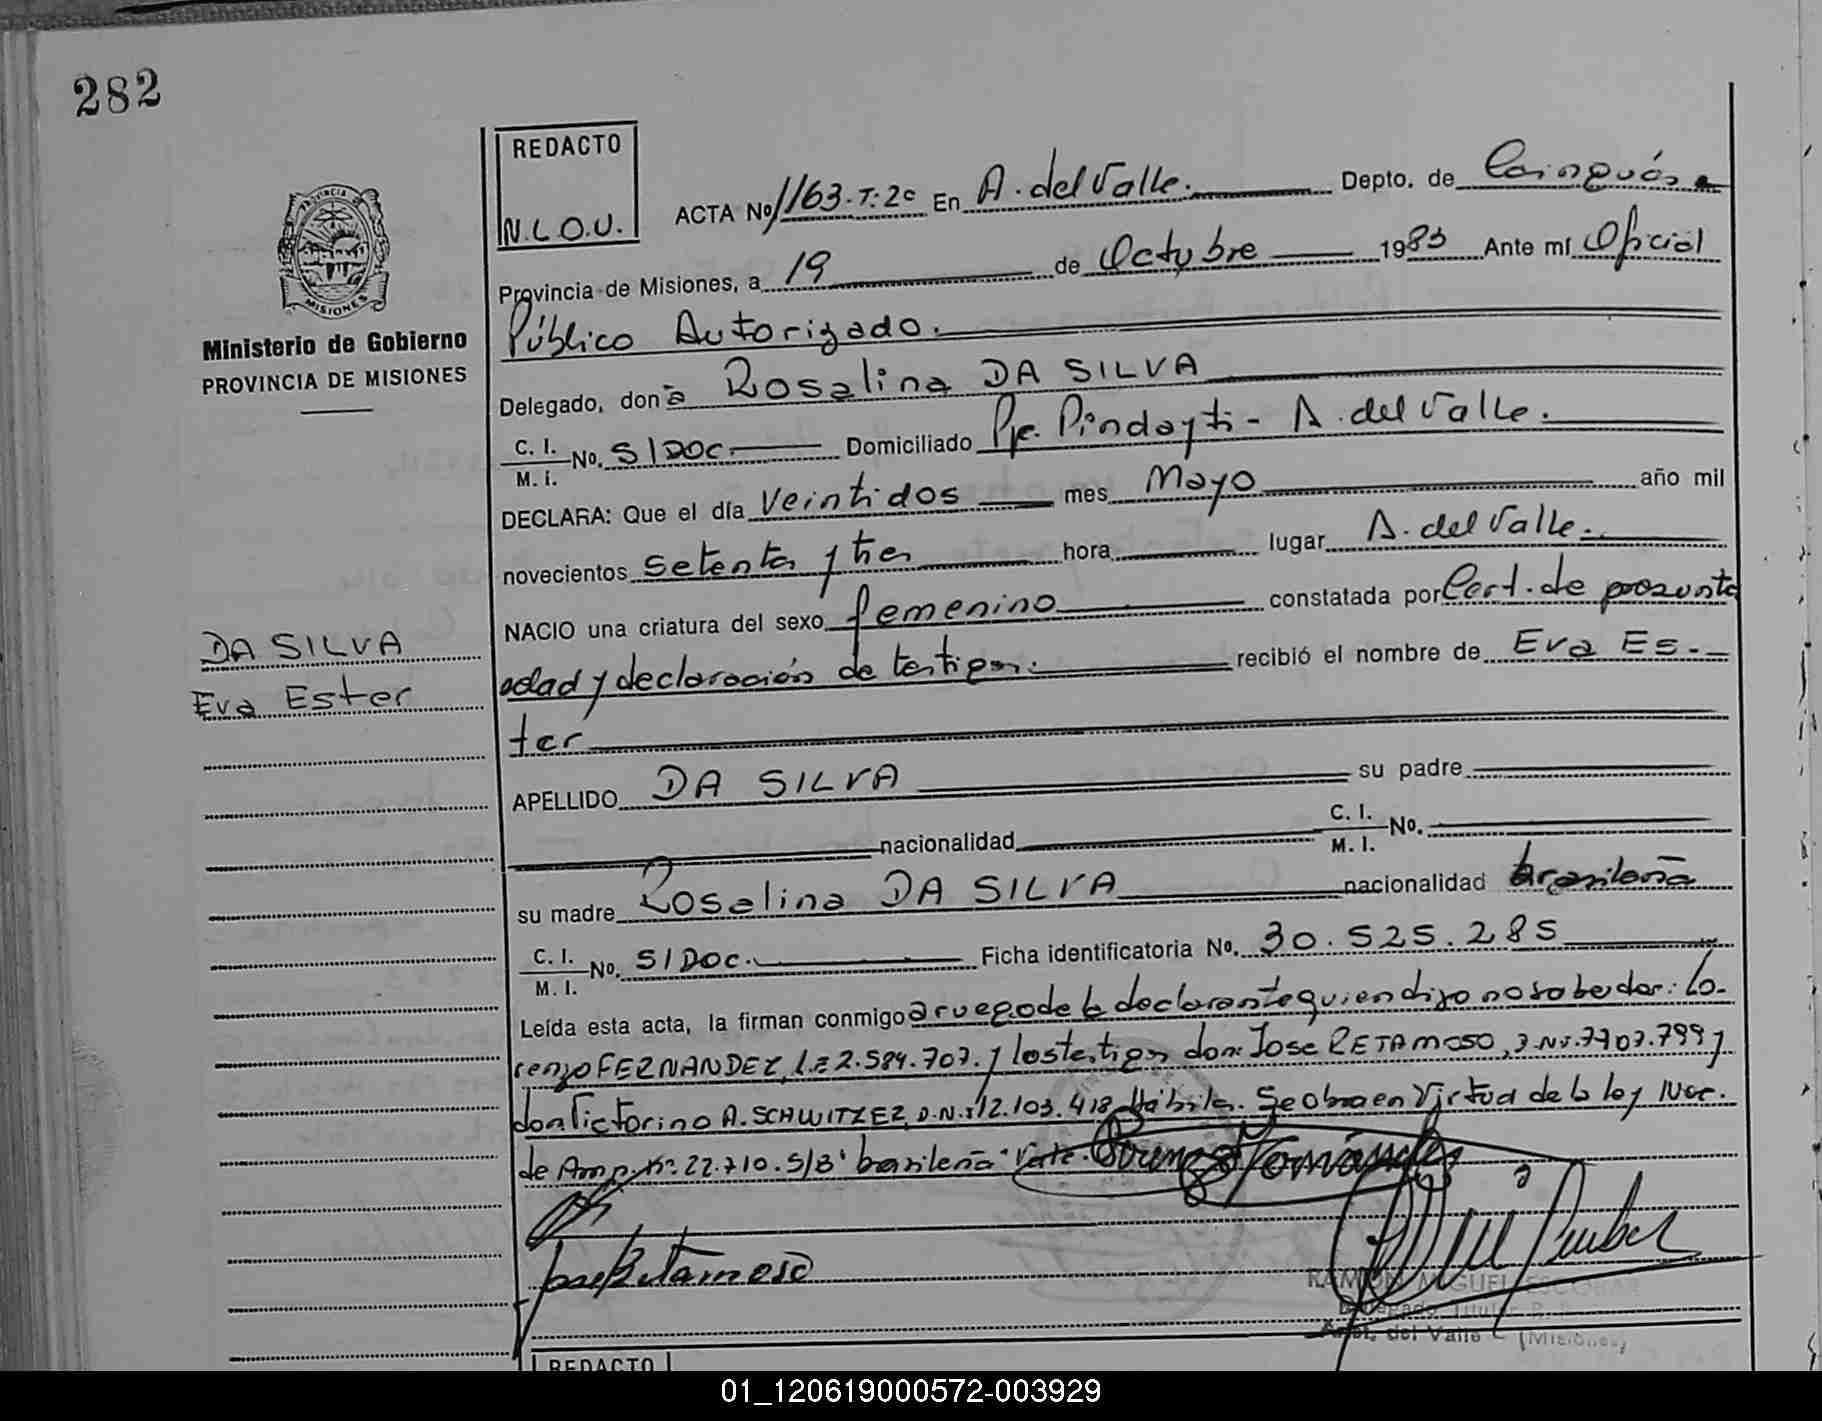 282
REDACTO
N.L.O.U.
ACTA No 1163.T:2º En A. del Valle. Depto. de Cainguás
Provincia de Misiones, a 19 de Octubre 1983 Ante mí Oficial
Público Autorizado.
Delegado, don a Rosalina DA SILVA
C. I.
M. I. No. S/DOC. Domiciliado Pje. Pindayti - A. del Valle.
DECLARA: Que el día Veintidos mes Mayo año mil
novecientos setenta y tres hora lugar A. del Valle.
NACIO una criatura del sexo femenino constatada por Cert. de presunta
edad y declaración de testigos. recibió el nombre de Eva Es-
ter
APELLIDO DA SILVA su padre
nacionalidad C. I.
M. I. No.
su madre Rosalina DA SILVA nacionalidad brasileña
C. I.
M. I. No. S/DOC. Ficha identificatoria No. 30.525.285
Leída esta acta, la firman conmigo a ruego de la declarante quien dijo no saber dar: Lo-
renzo FERNANDEZ, L.E 2.584.707. y los testigos don: Jose RETAMOSO, D.N.I. 7.707.799 y
don Victorino A. SCHWITZER, D.N.I 12.103.418 Hábiles. Se obra en Virtud de la ley Nac.
de Amp. Nº 22.710. S/B "brasileña" Vale.
Jose Retamoso
RAMON MIGUEL ESCOBAR
Delegado Titular R. P.
Arist. del Valle (Misiones)
PROVINCIA
MISIONES
Ministerio de Gobierno
PROVINCIA DE MISIONES
DA SILVA
Eva Ester
REDACTO
01_120619000572-003929